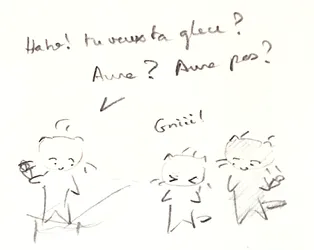 Haha! tu veux ta glace?
Aura? Aura pas?
Griii!